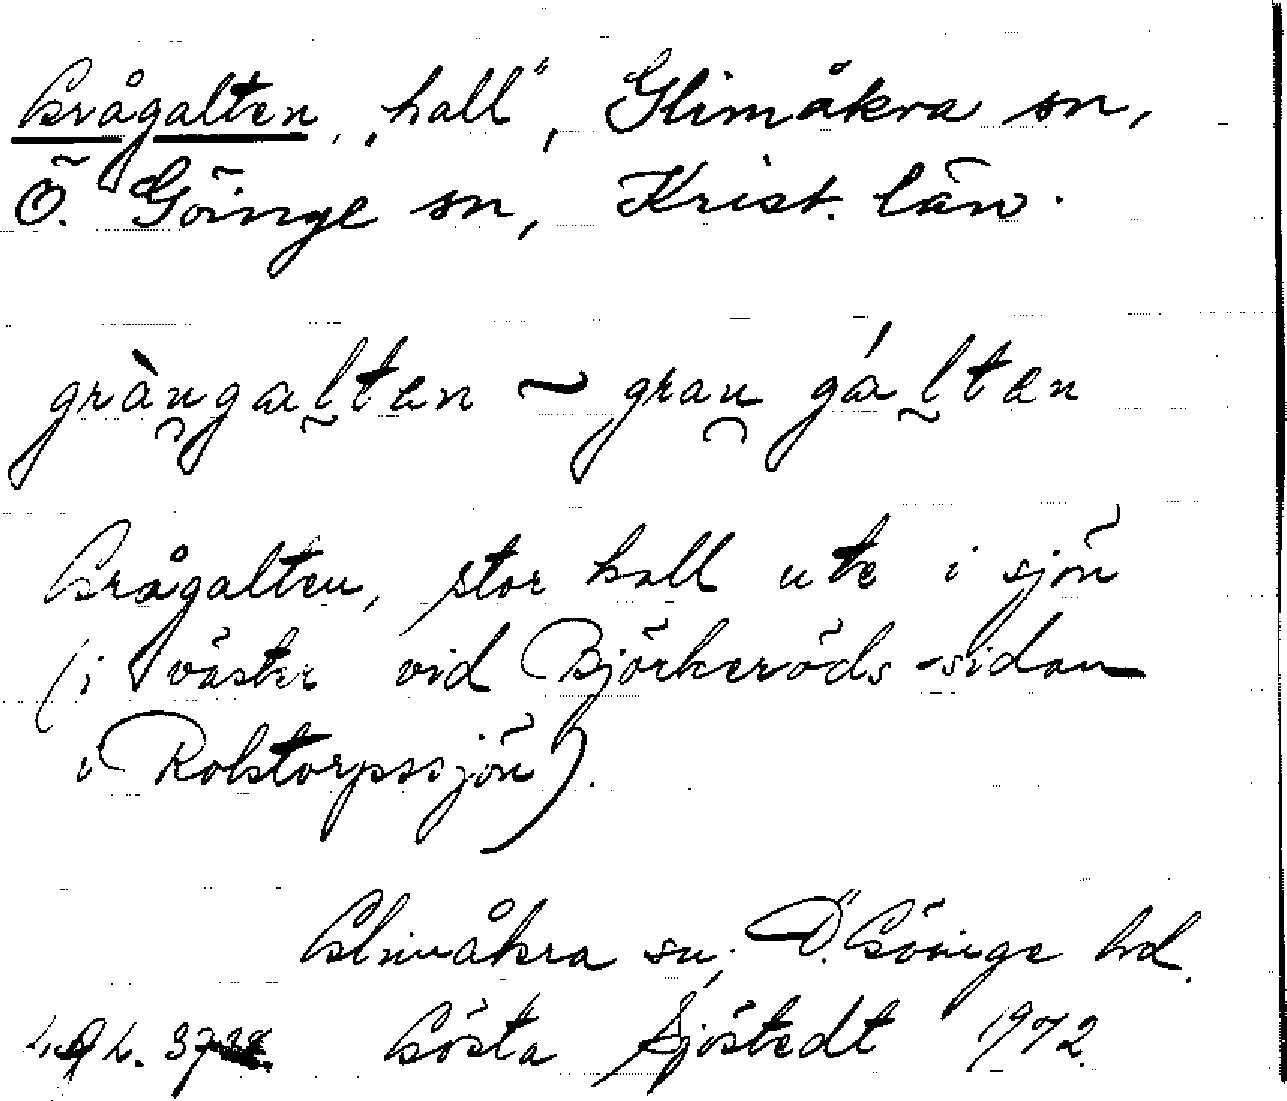 Grågalten, „hall“, Glimåkra sn,
Ö. Göinge sn, Krist. län.
gràu̯gal̰ten ~ grau̯ gál̰ten
Grågalten, stor hall ute i sjön
(i väster vid Björkeröds-sidan
i Rolstorpssjön).
Glimåkra sn, Ö. Göinge hd.
Gösta Sjöstedt 1972